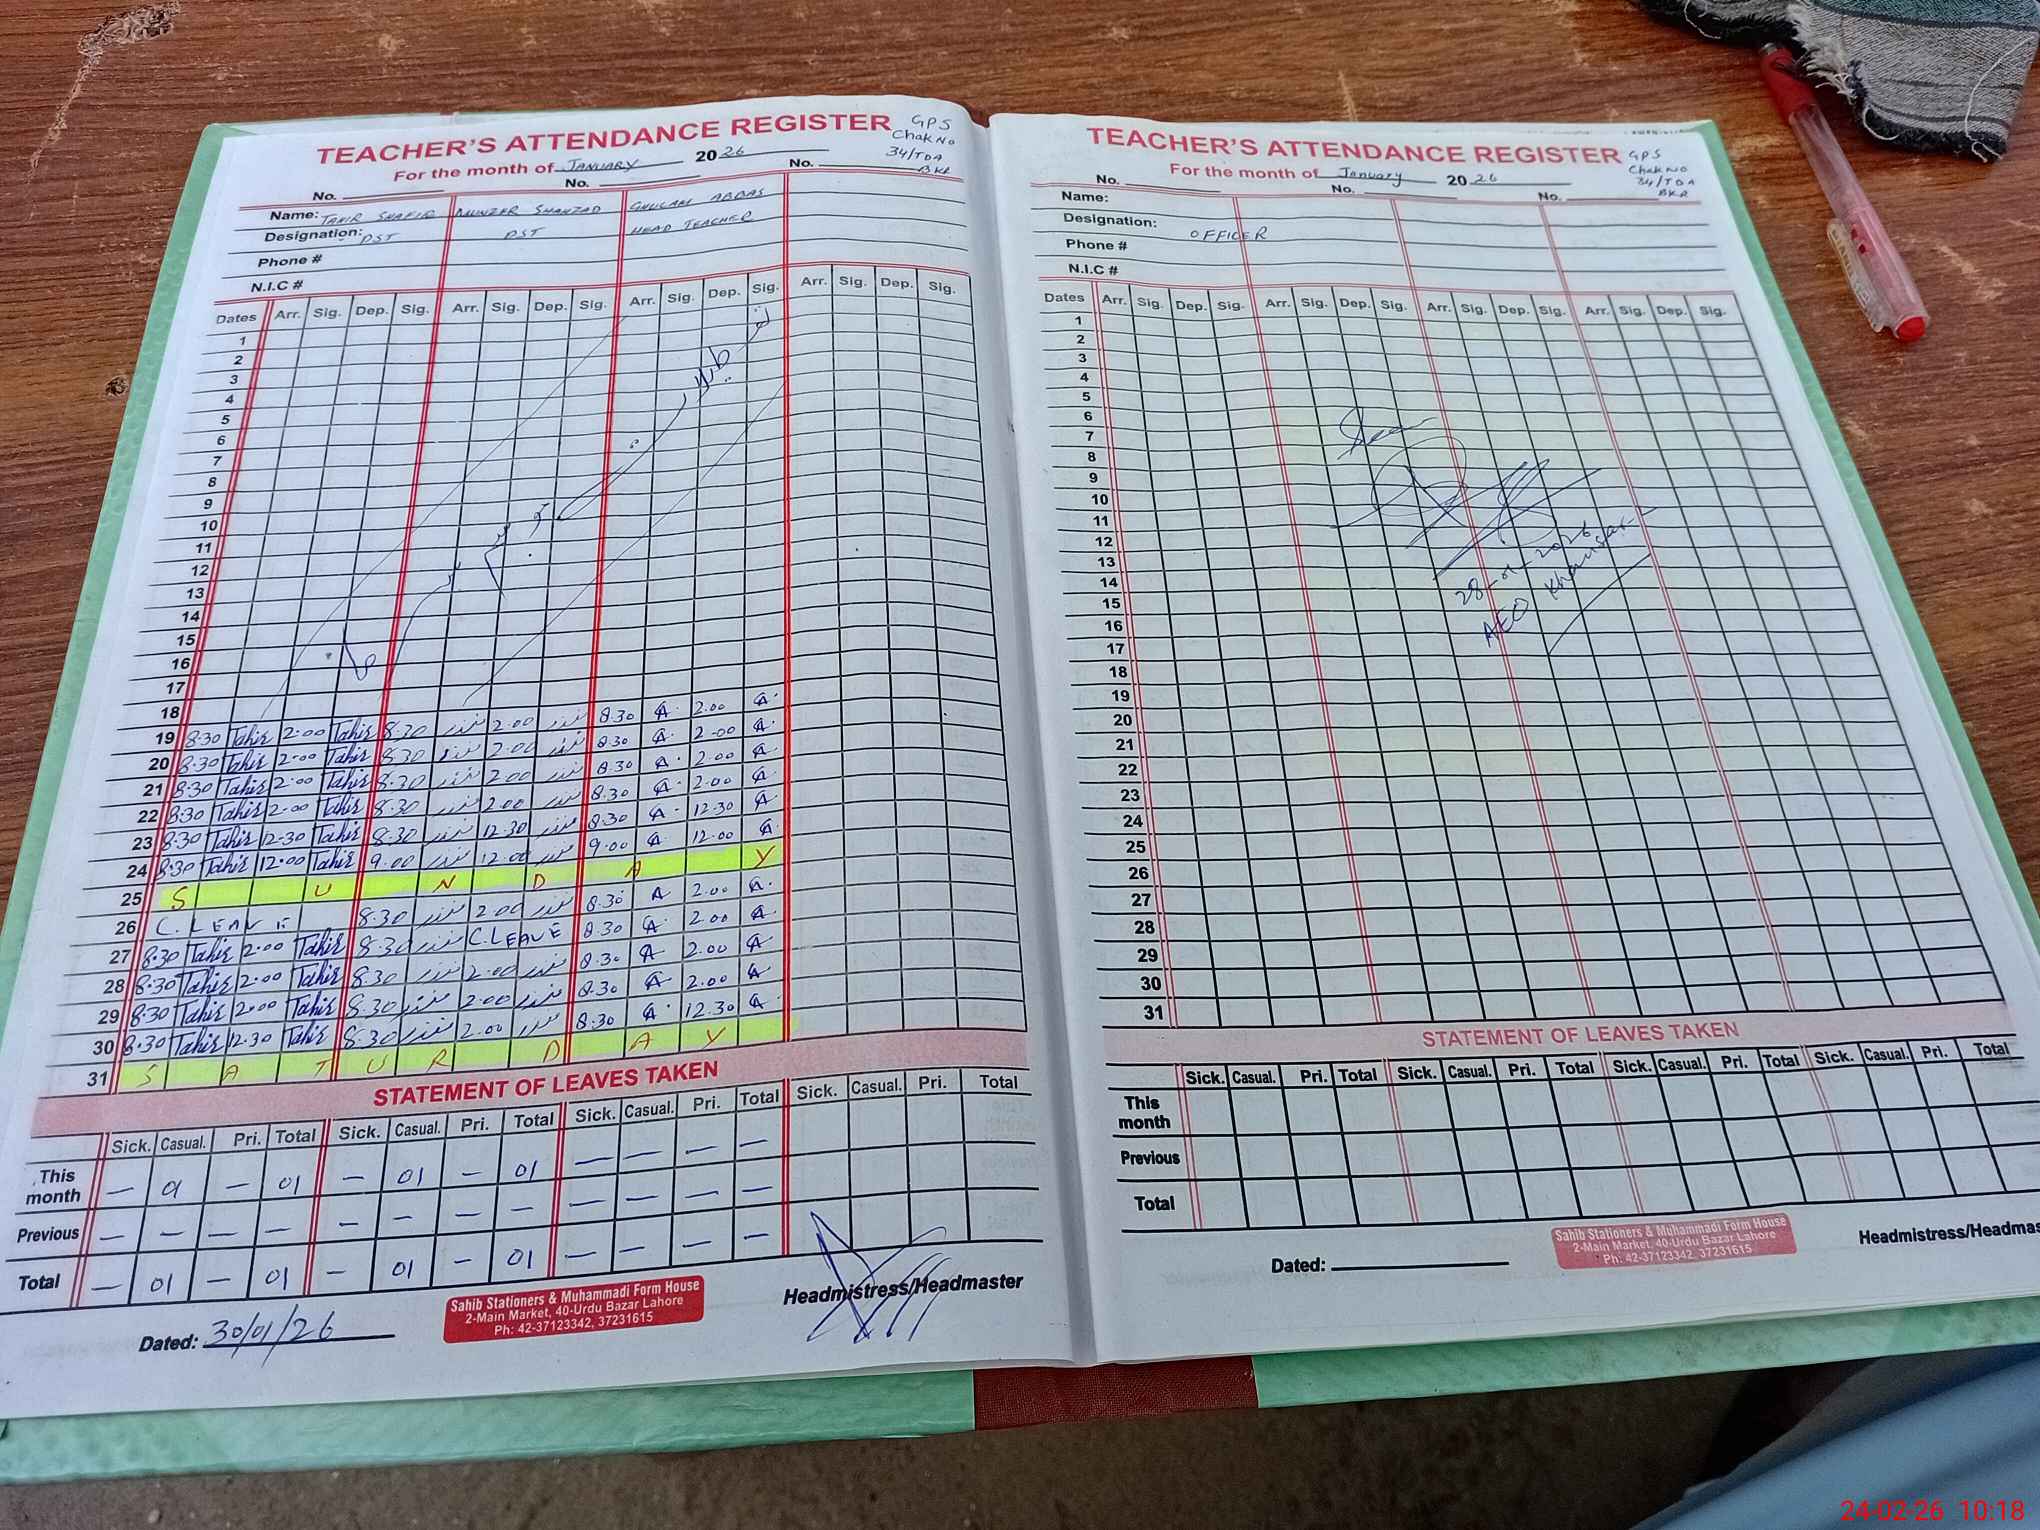 TEACHER'S ATTENDANCE REGISTER GPS
Chak No
34/TDA
BKR
For the month of January 2026
No. No. No.
Name: TAHIR SHAFIR MUNZAR SHAHZAD GHULAM ABBAS
Designation: PST PST HEAD TEACHER
Phone #
N.I.C #
Dates Arr. Sig. Dep. Sig. Arr. Sig. Dep. Sig. Arr. Sig. Dep. Sig. Arr. Sig. Dep. Sig.
1
2
3
4
5
6
7
8
9
10
11
12
13
14
15
16
17
18
19 8:30 Tahir 2:00 Tahir 8.30 2.00 8.30 2.00
20 8:30 Tahir 2:00 Tahir 8.30 2.00 8.30 2.00
21 8:30 Tahir 2:00 Tahir 8.30 2.00 8.30 2.00
22 8:30 Tahir 2:00 Tahir 8.30 2.00 8.30 2.00
23 8:30 Tahir 12:30 Tahir 8.30 12.30 8.30 12.30
24 8:30 Tahir 12:00 Tahir 9.00 12.00 9.00 12.00
25 S U N D A Y
26 C. LEAVE 8.30 2.00 8.30 2.00
27 8:30 Tahir 2:00 Tahir 8.30 C.LEAVE 8.30 2.00
28 8:30 Tahir 2:00 Tahir 8.30 2.00 8.30 2.00
29 8:30 Tahir 2:00 Tahir 8.30 2.00 8.30 2.00
30 8:30 Tahir 12.30 Tahir 8.30 2.00 8.30 12.30
31 S A T U R D A Y
STATEMENT OF LEAVES TAKEN
Sick. Casual. Pri. Total Sick. Casual. Pri. Total Sick. Casual. Pri. Total Sick. Casual. Pri. Total
This month — 01 — 01 — 01 — 01 — — — —
Previous — — — — — — — — — — — —
Total — 01 — 01 — 01 — 01 — — — —
Dated: 30/01/26
Sahib Stationers & Muhammadi Form House
2-Main Market, 40-Urdu Bazar Lahore
Ph: 42-37123342, 37231615
Headmistress/Headmaster
TEACHER'S ATTENDANCE REGISTER GPS
Chak No
34/TDA
BKR
For the month of January 2026
No. No. No.
Name:
Designation: OFFICER
Phone #
N.I.C #
Dates Arr. Sig. Dep. Sig. Arr. Sig. Dep. Sig. Arr. Sig. Dep. Sig. Arr. Sig. Dep. Sig.
1
2
3
4
5
6
7
8
9
10
11
12
13
14
15
16
17
18
19
20
21
22
23
24
25
26
27
28
29
30
31
28-01-2026
AEO Khansar
STATEMENT OF LEAVES TAKEN
Sick. Casual. Pri. Total Sick. Casual. Pri. Total Sick. Casual. Pri. Total Sick. Casual. Pri. Total
This month
Previous
Total
Dated:
Sahib Stationers & Muhammadi Form House
2-Main Market, 40-Urdu Bazar Lahore
Ph: 42-37123342, 37231615
Headmistress/Headmas
24-02-26 10:18